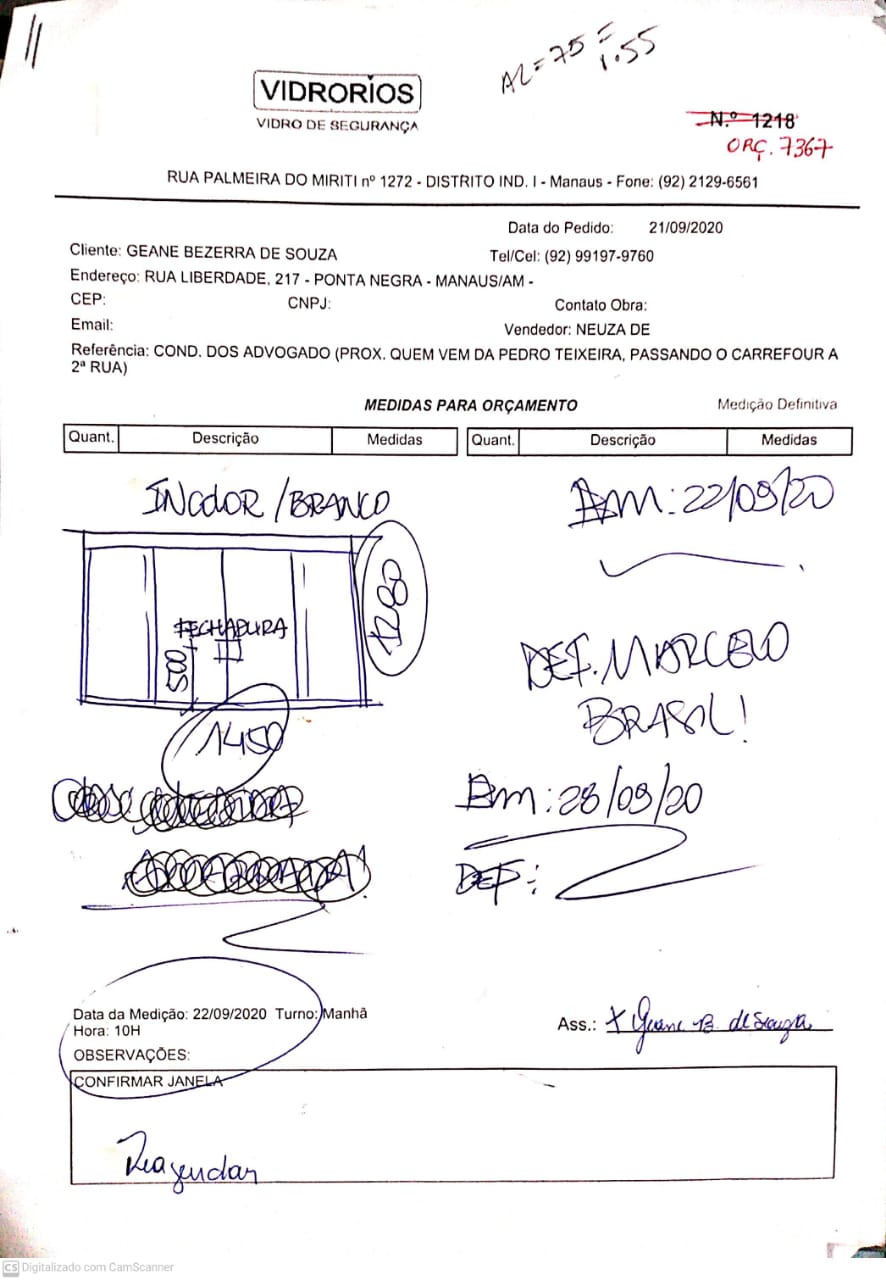 AL = 75 =
1.55
VIDRORIOS
VIDRO DE SEGURANÇA
N.º 1218
ORÇ. 7367
RUA PALMEIRA DO MIRITI nº 1272 - DISTRITO IND. I - Manaus - Fone: (92) 2129-6561
Data do Pedido: 21/09/2020
Cliente: GEANE BEZERRA DE SOUZA Tel/Cel: (92) 99197-9760
Endereço: RUA LIBERDADE, 217 - PONTA NEGRA - MANAUS/AM -
CEP: CNPJ: Contato Obra:
Email: Vendedor: NEUZA DE
Referência: COND. DOS ADVOGADO (PROX. QUEM VEM DA PEDRO TEIXEIRA, PASSANDO O CARREFOUR A
2ª RUA)
MEDIDAS PARA ORÇAMENTO Medição Definitiva
Quant. Descrição Medidas Quant. Descrição Medidas
INCOLOR / BRANCO
Em: 22/09/20
1280
FECHADURA
500
DEF. MARCELO
BRASIL!
1450
Em: 28/09/20
DEF:
Data da Medição: 22/09/2020 Turno: Manhã
Hora: 10H
Ass.: X Geane B. de Souza
OBSERVAÇÕES:
CONFIRMAR JANELA
Reagendar
CS Digitalizado com CamScanner